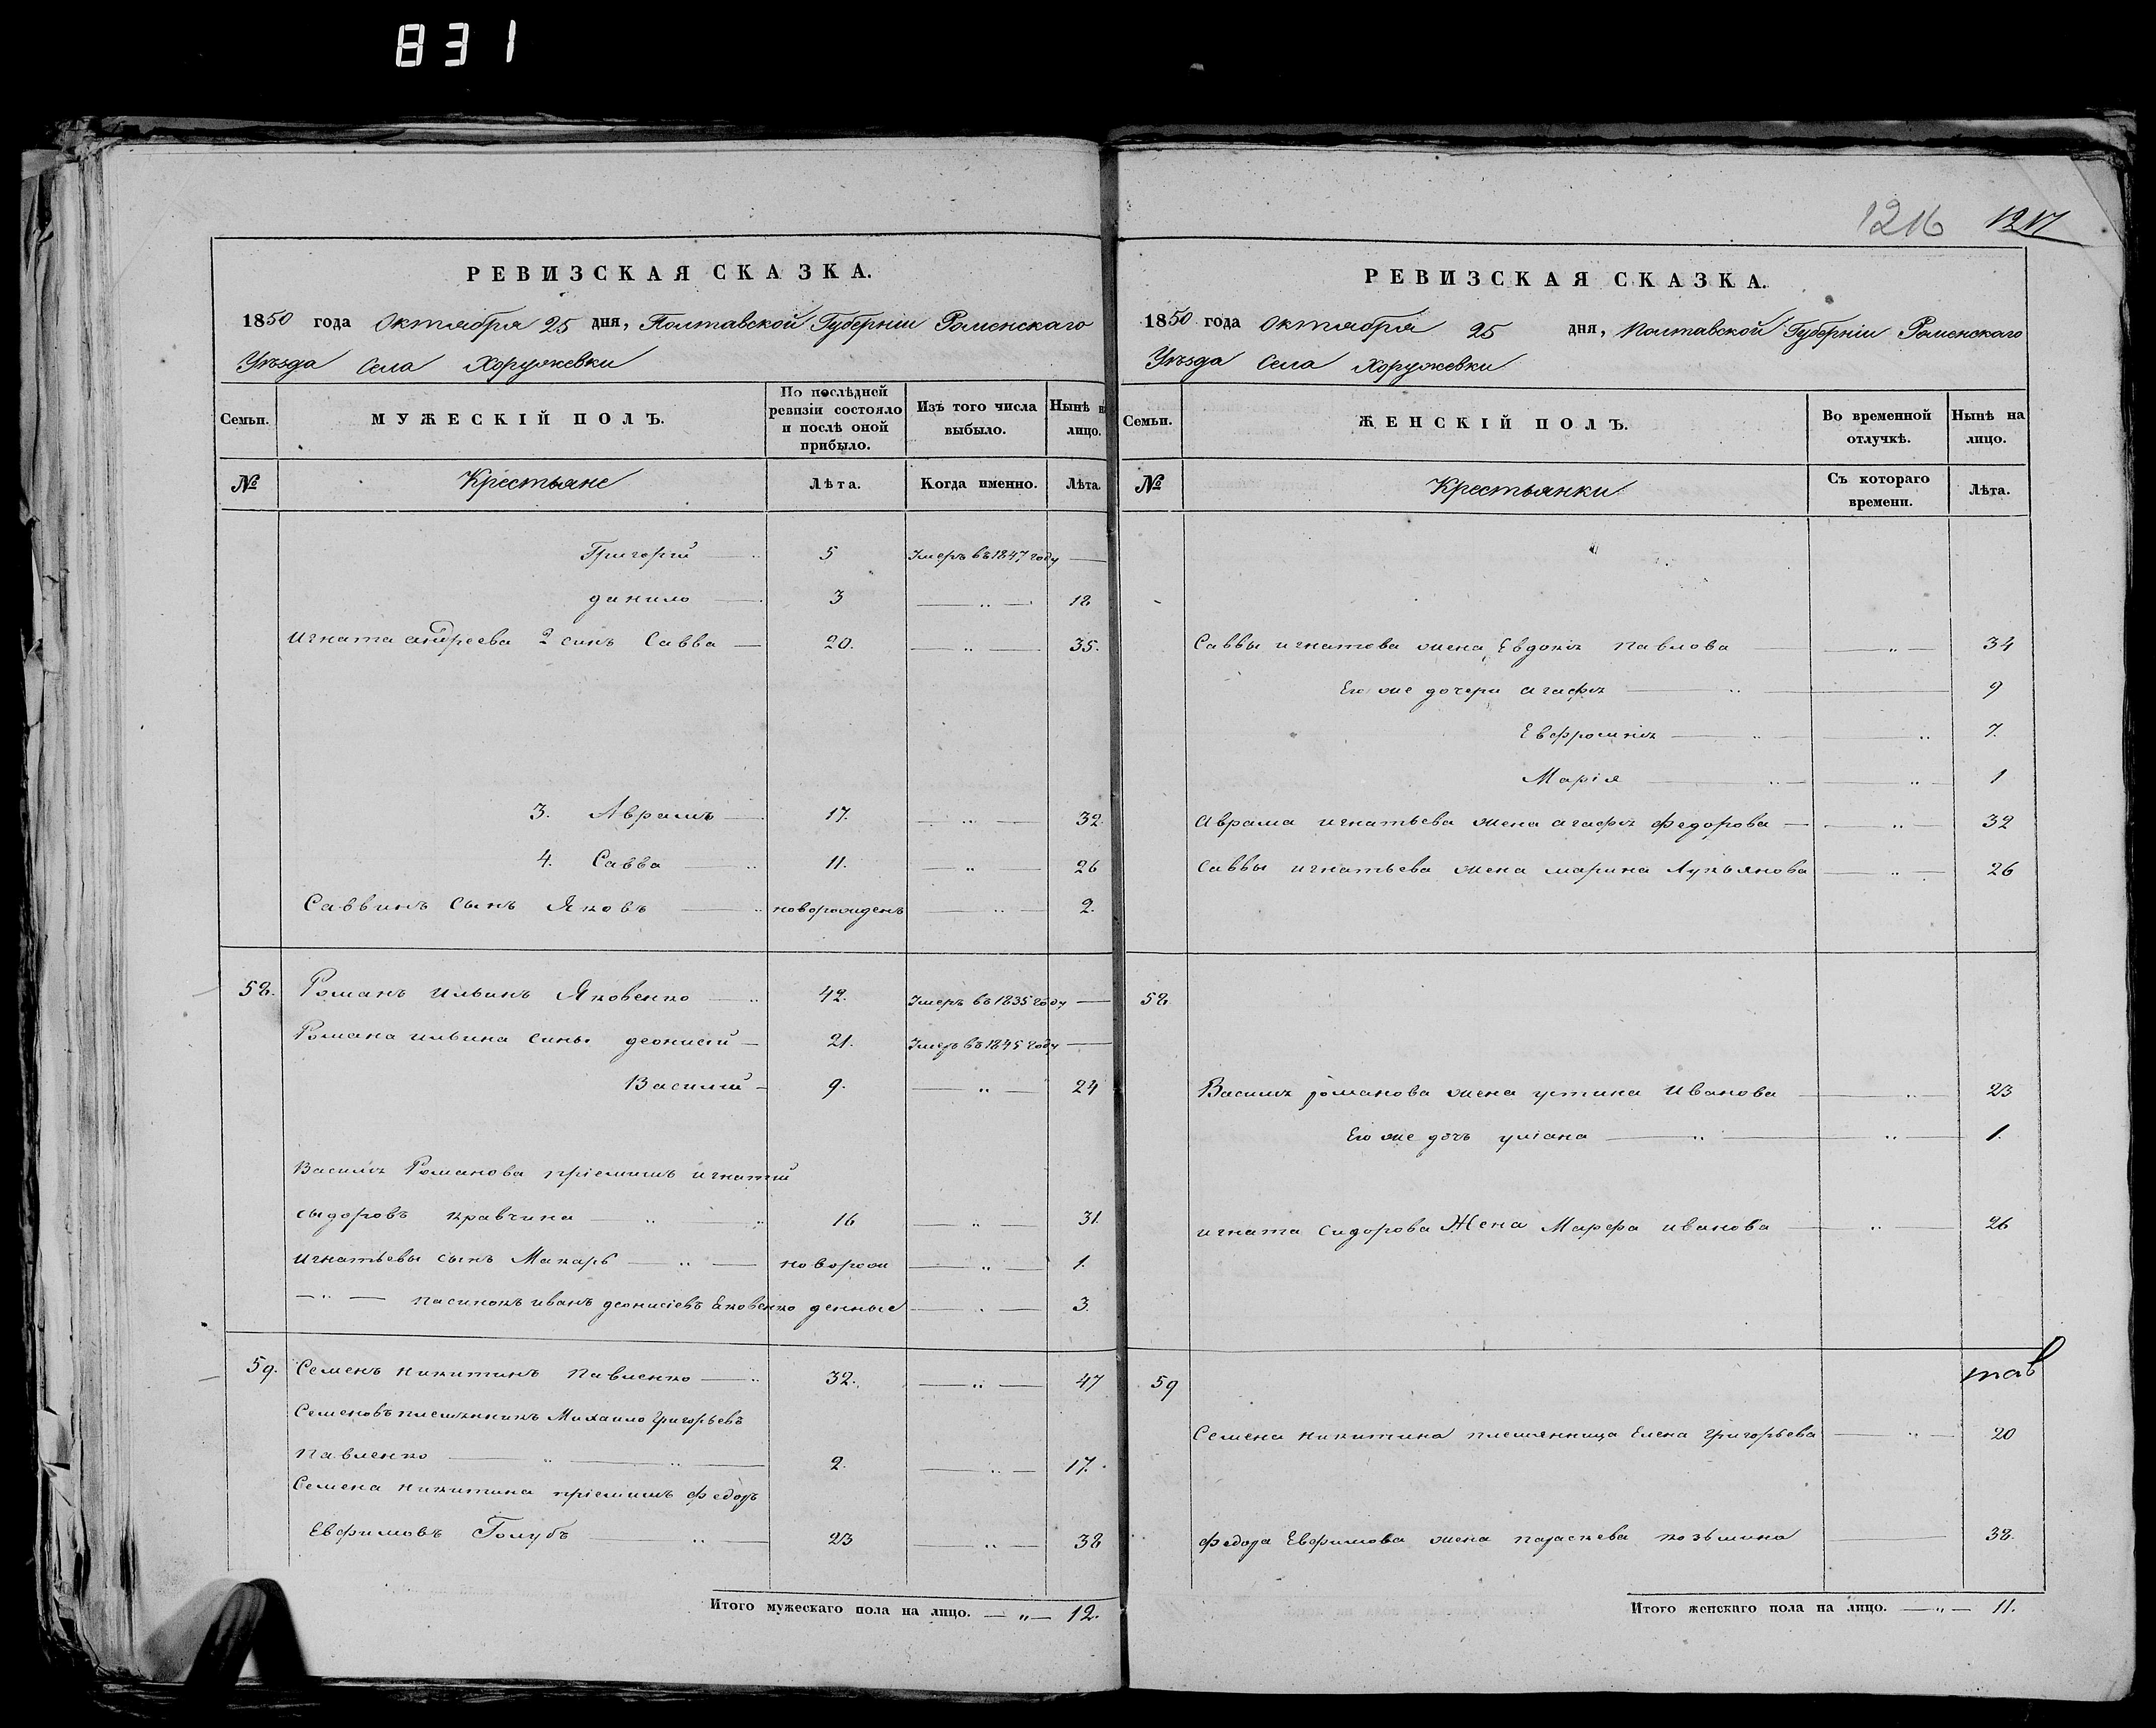 831
1216 1217
РЕВИЗСКАЯ СКАЗКА.
1850 года Октября 25 дня, Полтавской Губерніи Роменскаго
Уѣзда Села Хоружевки
Семьи. МУЖЕСКІЙ ПОЛЪ. По послѣдней ревизіи состояло и послѣ оной прибыло. Изъ того числа выбыло. Нынѣ н лицо.
№ Крестьяне Лѣта. Когда именно. Лѣта.
Григорій — 5 Умеръ въ 1847 году —
данило — 3 — 18
Игната андреева 2 синъ Савва — 20. — 35.
3. Аврамъ — 17. — 32.
4. Савва — 11. — 26
Саввинъ Сынъ Яковъ — новорожденъ — 2.
58. Романъ Ильинъ Яковенко — 42. Умеръ въ 1835 году —
Романа ильина сины деонисій — 21. Умеръ въ 1845 году —
Василій — 9. — 24
Василя Романова пріемишъ игнатій
сыдоровъ кравчина — 16 — 31.
Игнатьевы сынъ Макаръ — новорож — 1.
— пасинокъ иванъ деонисіевъ Яковенко денные — 3.
59. Семенъ никитинъ Павленко — 32. — 47
Семеновъ племянникъ Михаило григорьевъ
Павленко — 2. — 17.
Семена никитина пріемишъ федоръ
Евфимовъ Голубъ — 23 — 38
Итого мужескаго пола на лицо. — 12.
РЕВИЗСКАЯ СКАЗКА.
1850 года Октября 25 дня, Полтавской Губерніи Роменскаго
Уѣзда Села Хоружевки
Семьи. ЖЕНСКІЙ ПОЛЪ. Во временной отлучкѣ. Нынѣ на лицо.
№ Крестьянки Съ котораго времени. Лѣта.
Саввы игнатова жена Евдокія Павлова — 34
Его же дочери агафія — 9
Евфросинія — 7.
Марія — 1
Аврама игнатьева жена агафія федорова — 32
Саввы игнатьева жена марина Лукьянова — 26
58
Василя романова жена устина Иванова — 23
Его же дочь уліана — 1.
игната сидорова Жена Марфа иванова — 26
59
Семена никитина племянница Елена григорьева — 20
федора Евфимова жена параскева козьмина — 38.
Итого женскаго пола на лицо. — 11.